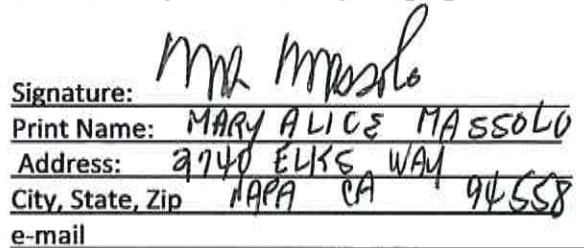 Signature: MA Massolo
Print Name: MARY ALICE MASSOLO
Address: 2740 ELKS WAY
City, State, Zip NAPA CA 94558
e-mail